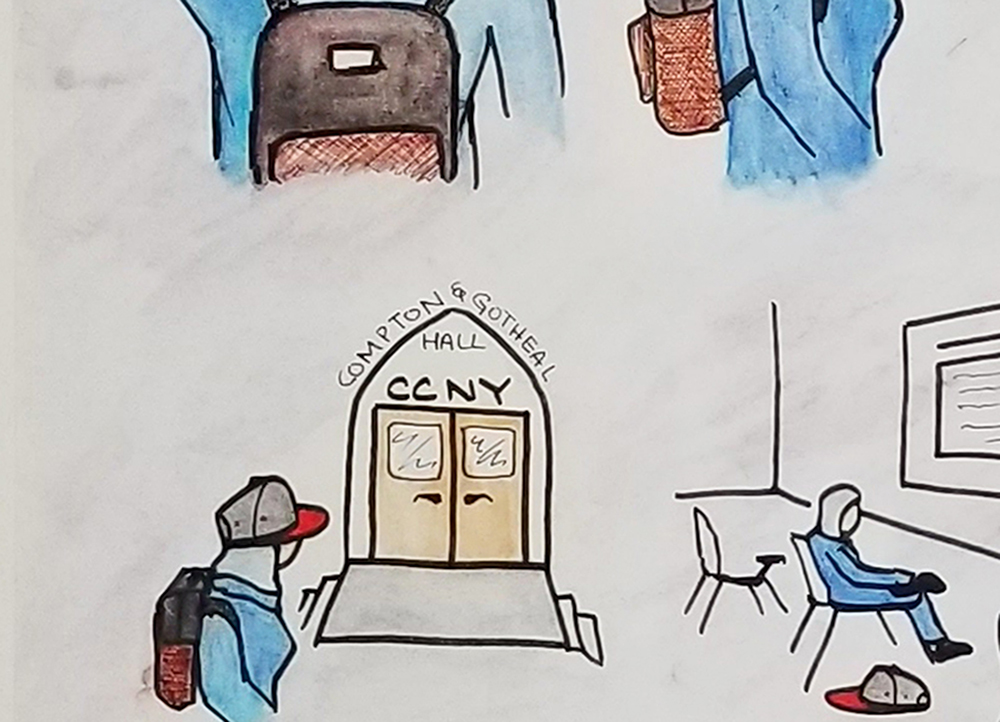 COMPTON & GOTHEAL
HALL
CCNY